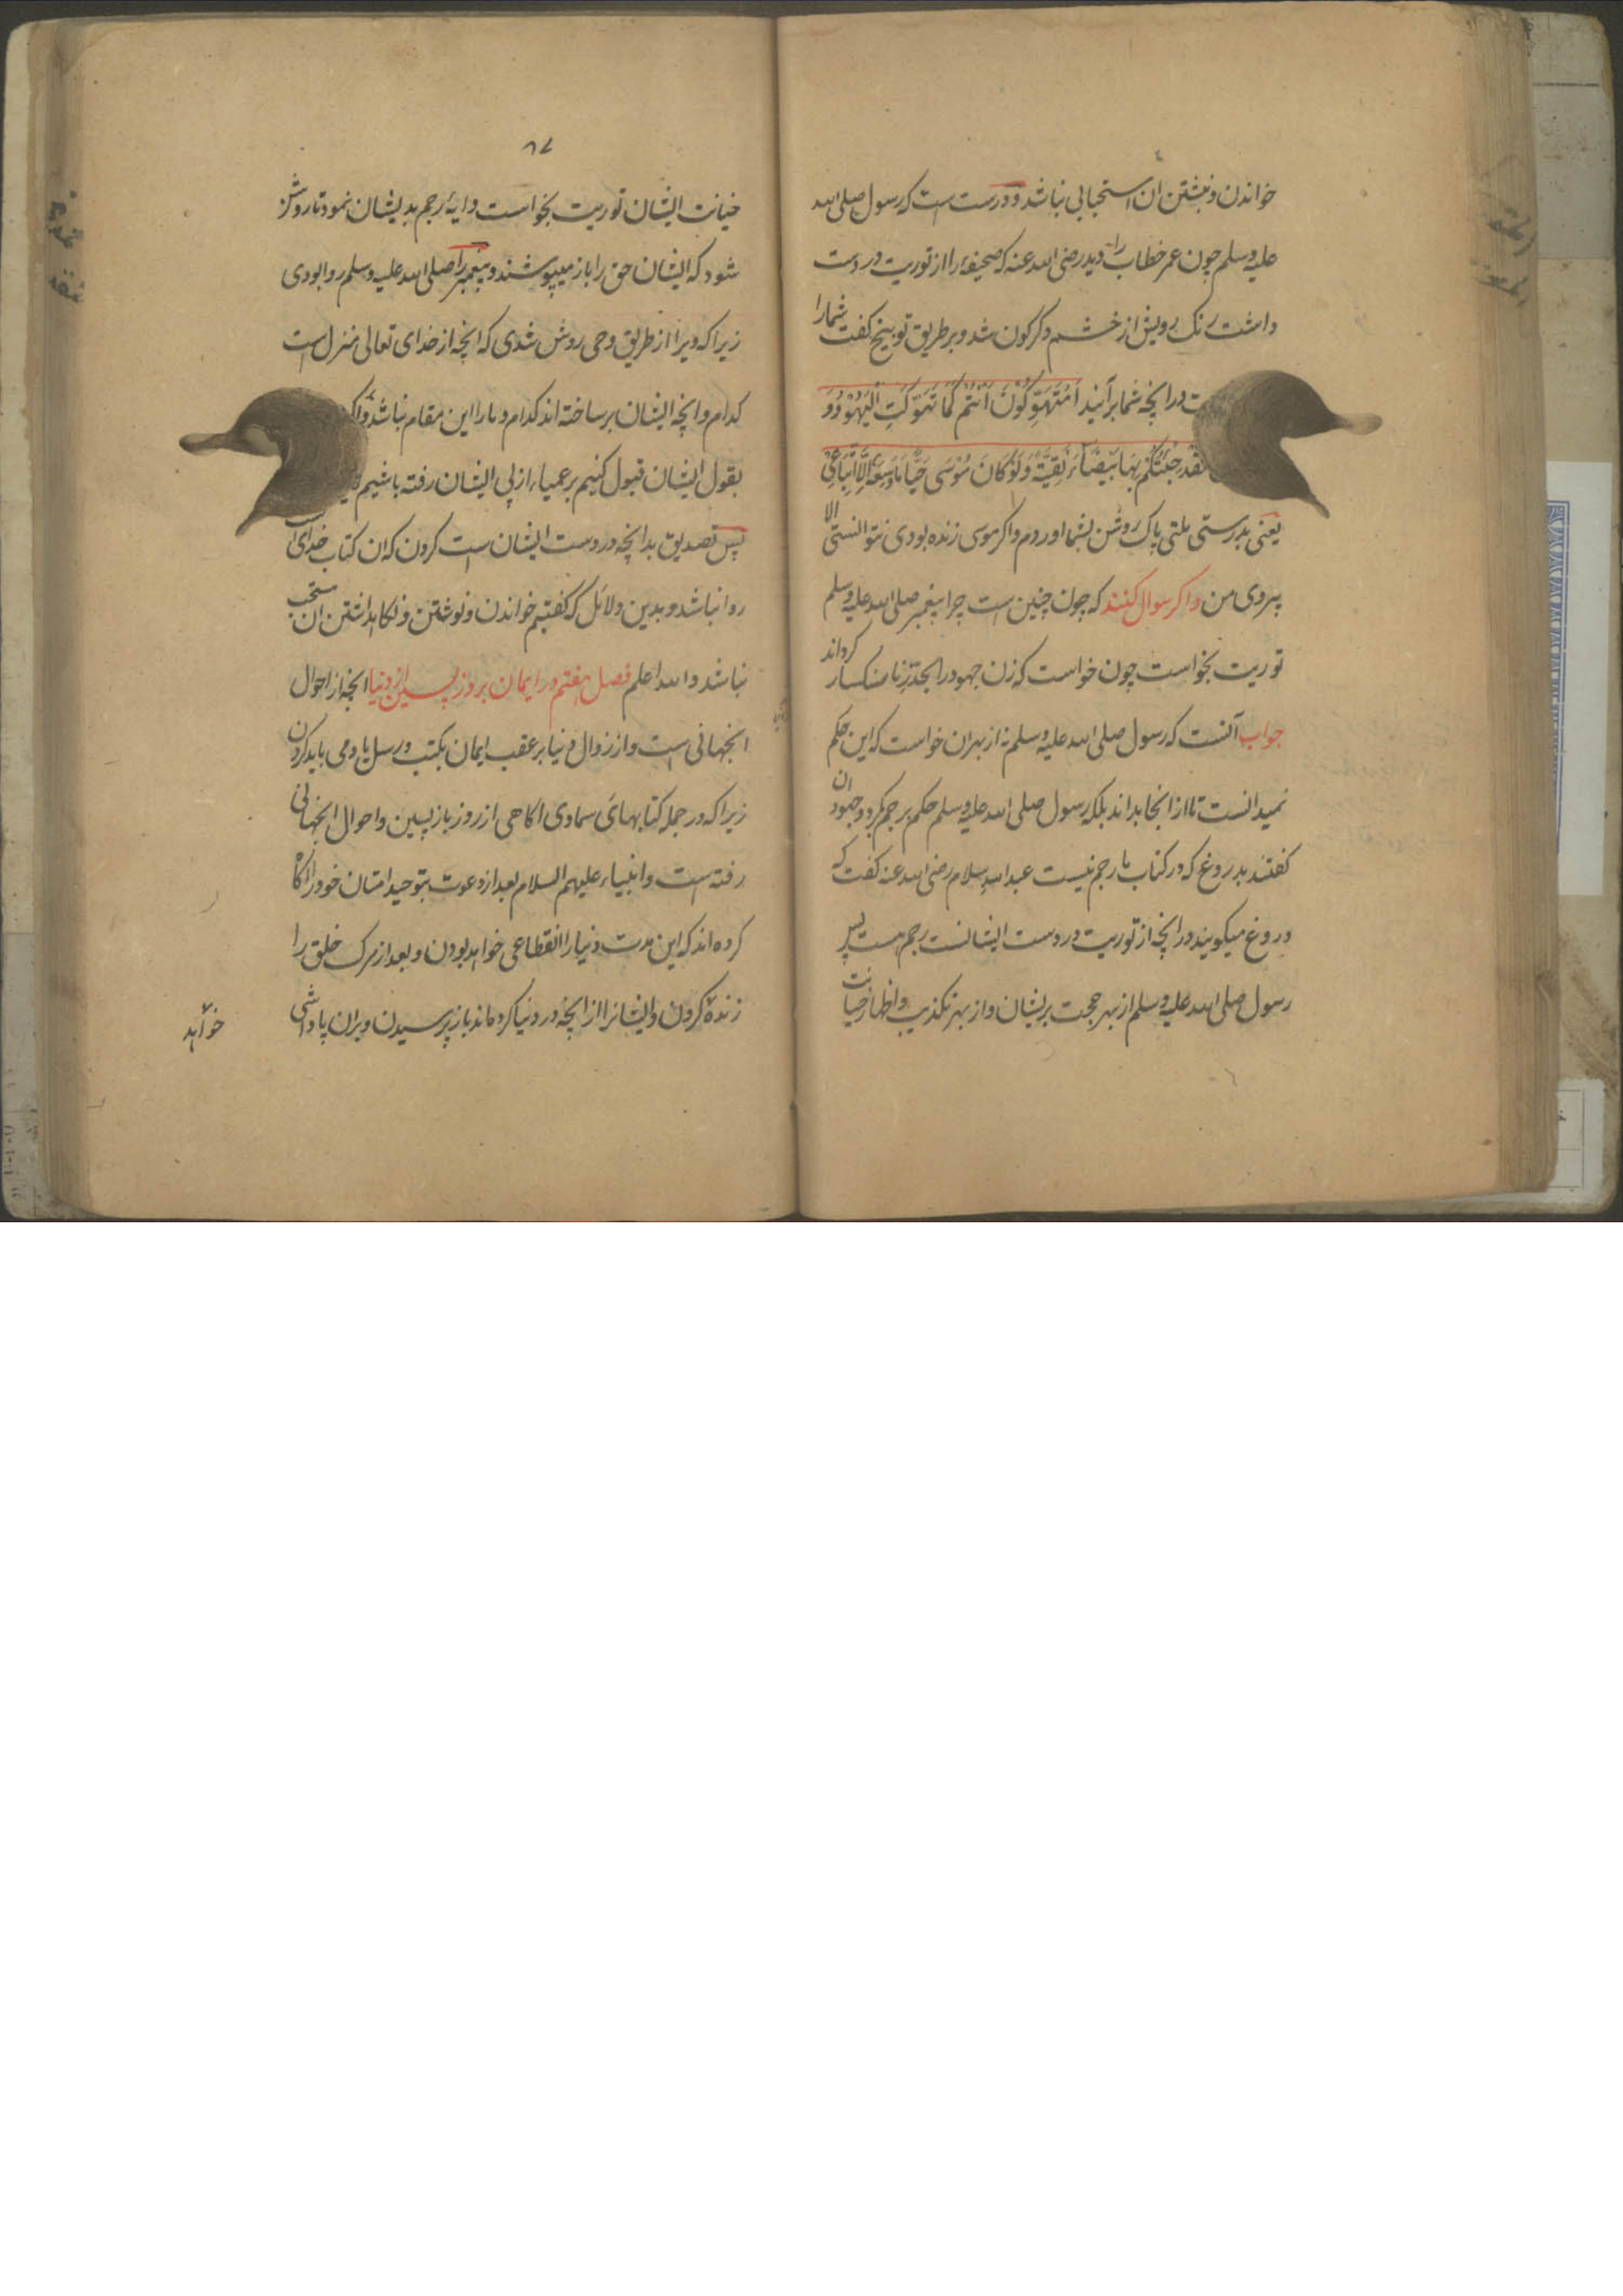 خواندن و نبشتن ان استحبابی نباشد و درست است که رسول صلی الله
علیه وسلم چون عمر خطاب را دید رضی الله عنه که صحیفهٔ را از توریت در دست
داشت رنک رویش از خشم دکرکون شد و بر طریق توبیخ کفت شمارا
در انچه شما برآنید اَمُتَهَوِّکُوْنَ اَنْتُمْ کَمَا تَهَوَّکَتِ الْیَهُوْدُ وَ
لَقَدْ جِئْتُکُمْ بِهَا بَیْضَآءَ نَقِیَّةً وَلَوْ کَانَ مُوْسَی حَیًّا مَا وَسِعَهُ اِلَّا اتِّبَاعِیْ
یعنی بدرستی ملتی پاک روشن بشما اوردم و اکر موسی زنده بودی نتوانستی الا
پیروی من و اکر سوال کنند که چون چنین است چرا پیغمبر صلی الله علیه وسلم
توریت بخواست چون خواست که زن جهود را بحد زنا سنکسار کرداند
جواب آنست که رسول صلی الله علیه وسلم نه از بهر ان خواست که این حکم
نمیدانست تا از انجا بداند بلکه رسول صلی الله علیه وسلم حکم برجم کرد و جهودان
کفتند بدروغ که در کتاب ما رجم نیست عبد الله سلام رضی الله عنه کفت که
دروغ میکویند در انچه از توریت در دست ایشانست رجم هست پس
رسول صلی الله علیه وسلم از بهر حجت بریشان و از بهر تکذیب و اظهار خیانت
۸۷
خیانت ایشان توریت بخواست و ایهٔ رجم بدیشان نمود تا روشن
شود که ایشان حق را باز میپوشند و پیغمبر را صلی الله علیه وسلم روا بودی
زیرا که ویرا از طریق وحی روشن شدی که انچه از خدای تعالی منزل است
کدام و انچه ایشان برساخته اند کدام و مارا این مقام نباشد و اکر
بقول ایشان قبول کنیم بر عمیاء از پی ایشان رفته باشیم
پس تصدیق بدانچه در دست ایشان است کردن که ان کتاب خدای است
روا نباشد و بدین دلائل که کفتیم خواندن و نوشتن و نکاهداشتن ان مستحب
نباشد والله اعلم فصل هفتم در ایمان بروز پسین از دنیا انچه از احوال
انجهانی است و از زوال دنیا بر عقب ایمان بکتب و رسل یاد می باید کردن
زیرا که در جمله کتابهای سماوی اکاهی از روز بازپسین و احوال انجهانی
رفته است و انبیاء علیهم السلام بعد از دعوت بتوحید امتان خود را اکاه
کرده اند که این مدت دنیا را انقطاعی خواهد بودن و بعد از مرک خلق را
زنده کردن و ایشانرا از انچه در دنیا کرده اند باز پرسیدن و بران پاداشی
خواهد